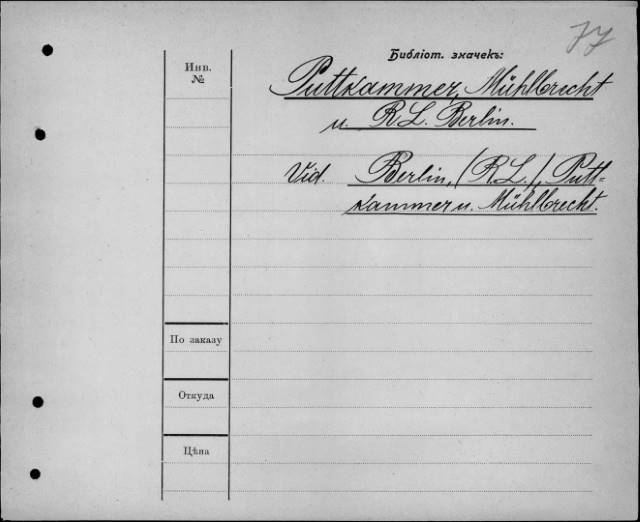 Библіот. значекъ:
Инв.
№
Puttkammer, Mühlbrecht
u. R L. Berlin.
Vid. Berlin, (R. L.), Putt-
kammer u. Mühlbrecht.
По заказу
Откуда
Цѣна